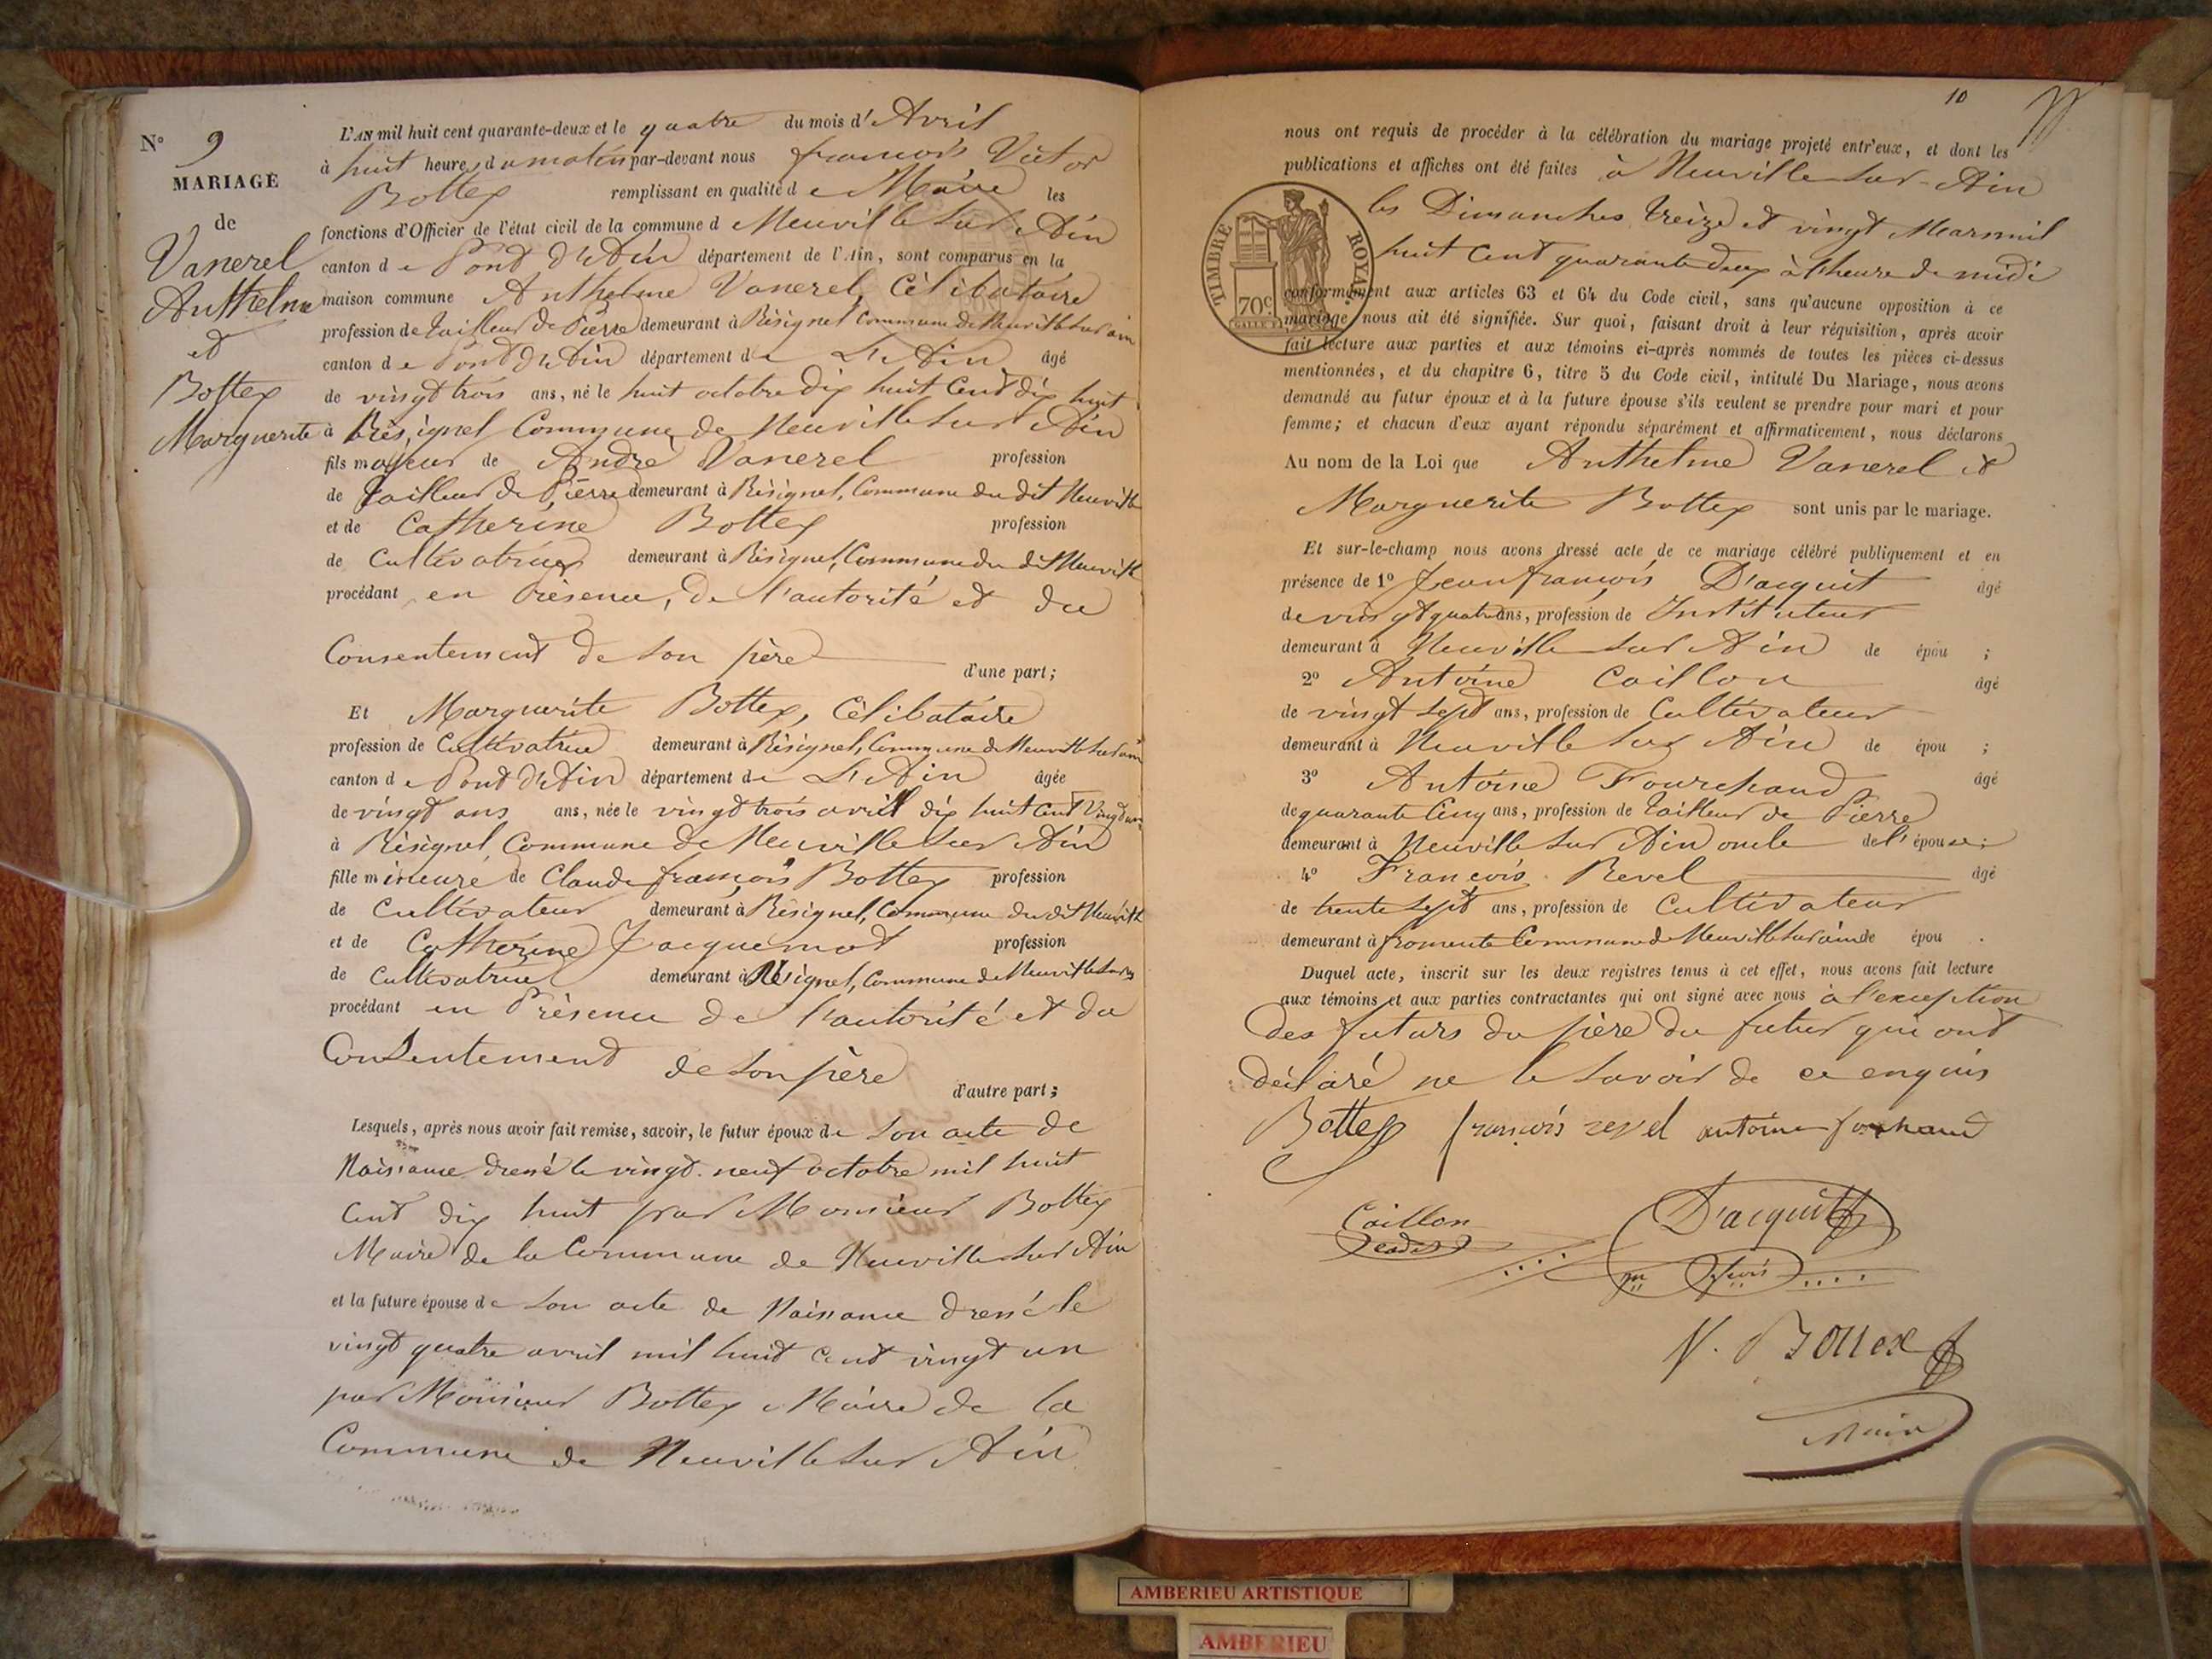 N° 9
MARIAGE
de
Vanerel
Anthelme
et
Bottex
Marguerite
L'AN mil huit cent quarante-deux et le quatre du mois d'Avril
à huit heures du matin par-devant nous françois Victor
Bottex remplissant en qualité de Maire les
fonctions d'Officier de l'état civil de la commune d Neuville sur Ain
canton de Pont d'Ain département de l'Ain, sont comparus en la
maison commune Anthelme Vanerel, Célibataire
profession de tailleur de Pierre demeurant à Résignel commune de Neuville sur ain
canton de Pont d'Ain département de L'Ain âgé
de vingt trois ans, né le huit octobre dix huit Cent dix huit
à Résignel Commune de Neuville sur Ain
fils majeur de André Vanerel profession
de Tailleur de Pierre demeurant à Résignel, Commune du dit Neuville
et de Catherine Bottex profession
de Cultivatrice demeurant à Résignel, Commune du dit Neuville
procédant en Présence, de l'autorité et du
Consentement de son père d'une part;
Et Marguerite Bottex, Célibataire
profession de Cultivatrice demeurant à Résignel, Commune de Neuville sur ain
canton de Pont d'Ain département de L'Ain âgée
de vingt ans ans, née le vingt trois avril dix huit Cent Vingt un
à Résignel Commune de Neuville sur Ain
fille mineure de Claude françois Bottex profession
de Cultivateur demeurant à Résignel, Commune du dit Neuville
et de Catherine Jacquemot profession
de Cultivatrice demeurant à Résignel, Commune de Neuville sur
procédant en Présence de l'autorité et du
Consentement de son père
d'autre part;
Lesquels, après nous avoir fait remise, savoir, le futur époux de son acte de
Naissance dressé le vingt neuf octobre mil huit
Cent dix huit par Monsieur Bottex
Maire de la Commune de Neuville sur Ain
et la future épouse de son acte de Naissance dressé le
vingt quatre avril mil huit cent vingt un
par Monsieur Bottex Maire de la
Commune de Neuville sur Ain
10
nous ont requis de procéder à la célébration du mariage projeté entr'eux, et dont les
publications et affiches ont été faites à Neuville sur Ain
les Dimanches treize et vingt Mars mil
huit Cent quarante deux à l'heure de midi
TIMBRE ROYAL
70c.
conformément aux articles 63 et 64 du Code civil, sans qu'aucune opposition à ce
mariage nous ait été signifiée. Sur quoi, faisant droit à leur réquisition, après avoir
fait lecture aux parties et aux témoins ci-après nommés de toutes les pièces ci-dessus
mentionnées, et du chapitre 6, titre 5 du Code civil, intitulé Du Mariage, nous avons
demandé au futur époux et à la future épouse s'ils veulent se prendre pour mari et pour
femme; et chacun d'eux ayant répondu séparément et affirmativement, nous déclarons
Au nom de la Loi que Anthelme Vanerel et
Marguerite Bottex sont unis par le mariage.
Et sur-le-champ nous avons dressé acte de ce mariage célébré publiquement et en
présence de 1° Jean françois D'acquit âgé
de vingt quatre ans, profession de Instituteur
demeurant à Neuville sur Ain de épou ;
2° Antoine Caillon âgé
de vingt sept ans, profession de Cultivateur
demeurant à Neuville sur Ain de épou ;
3° Antoine Fourchaud âgé
de quarante Cinq ans, profession de Tailleur de Pierre
demeurant à Neuville sur Ain oncle de l'épouse;
4° François Revel âgé
de trente sept ans, profession de Cultivateur
demeurant à fromente Commune de Neuville sur ain de épou .
Duquel acte, inscrit sur les deux registres tenus à cet effet, nous avons fait lecture
aux témoins et aux parties contractantes qui ont signé avec nous à l'exception
des futurs du père du futur qui ont
déclaré ne le savoir de ce enquis
Bottex françois revel antoine
Caillon
cadet
D'acquit
V. Bottex
Maire
AMBERIEU ARTISTIQUE
AMBERIEU